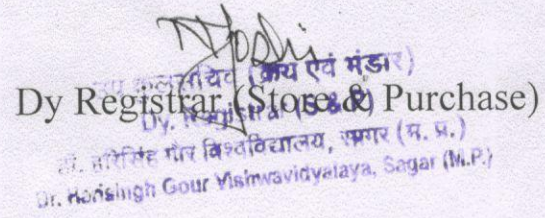 Joshi
उप कुलसचिव (क्रय एवं भंडार)
Dy Registrar (Store & Purchase)
Dy. Registrar (S & P)
डॉ. हरिसिंह गौर विश्वविद्यालय, सागर (म. प्र.)
Dr. Harisingh Gour Vishwavidyalaya, Sagar (M.P.)